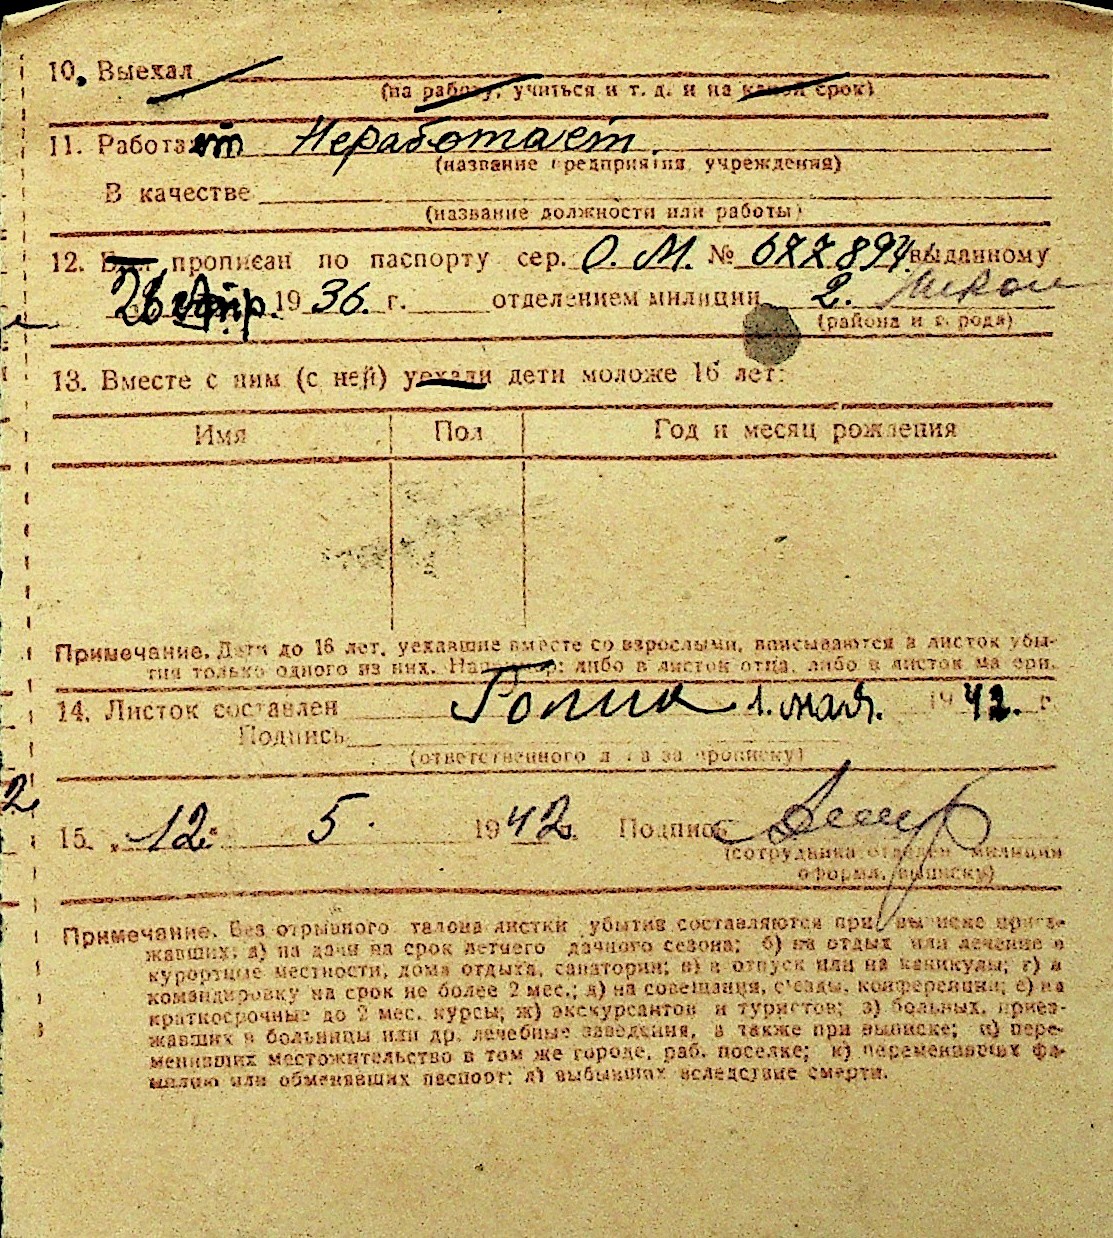 10. Выехал
(на работу, учиться и т. д. и на какой срок)
11. Работает Неработает.
(название предприятия, учреждения)
В качестве
(название должности или работы)
12. Был прописан по паспорту сер. О. М. № 677894. выданному
26 апр. 1936. г. отделением милиции 2.
(района и города)
13. Вместе с ним (с ней) уехали дети моложе 16 лет:
Имя Пол Год и месяц рождения
Примечание. Дети до 16 лет, уехавшие вместе со взрослыми, вписываются в листок убы-
тия только одного из них. Например: либо в листок отца, либо в листок матери.
14. Листок составлен 1. мая. 1942. г.
Подпись
(ответственного лица за прописку)
15. „12“ 5. 1942. Подпись
(сотрудника отделен. милиции
оформл. выписку)
Примечание. Без отрывного талона листки убытия составляются при выписке приез-
жавших: а) на дачи на срок летнего дачного сезона; б) на отдых или лечение в
курортные местности, дома отдыха, санатории; в) в отпуск или на каникулы; г) в
командировку на срок не более 2 мес.; д) на совещания, съезды, конференции; е) на
краткосрочные до 2 мес. курсы; ж) экскурсантов и туристов; з) больных, приез-
жавших в больницы или др. лечебные заведения, а также при выписке; и) пере-
менивших местожительство в том же городе, раб. поселке; к) переменивших фа-
милию или обменявших паспорт; л) выбывших вследствие смерти.
2.